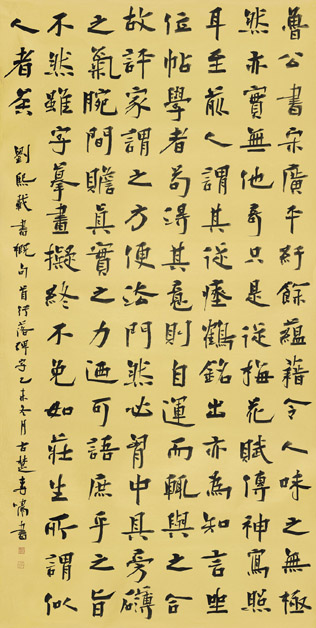 魯公書宋廣平紆餘蘊藉令人味之無極
然亦實無他奇只是從梅花賦傳神寫照
耳至前人謂其從瘞鶴銘出亦為知言坐
位帖學者苟得其意則自運而輒與之合
故評家謂之方便法門然必胸中具旁礴
之氣腕間贍真實之力迺可語庶乎之旨
不然雖字摹畫擬終不免如莊生所謂似
人者矣
劉熙載書概句首行落碑字乙未冬月古楚李書